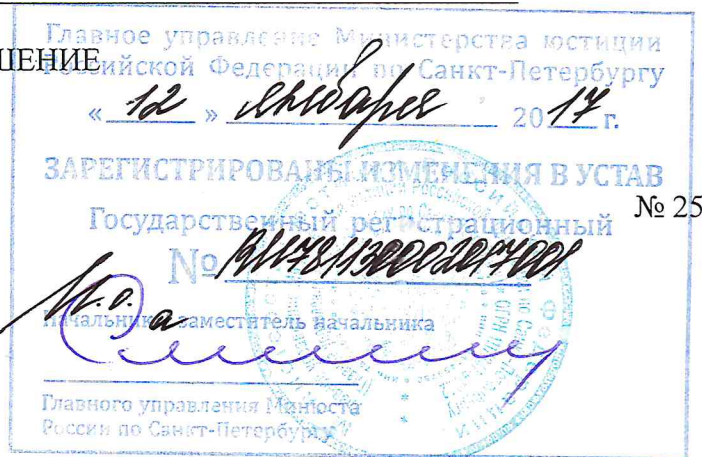 ШЕНИЕ
Главное управление Министерства юстиции
Российской Федерации по Санкт-Петербургу
« 12 » января 2017 г.
ЗАРЕГИСТРИРОВАНЫ ИЗМЕНЕНИЯ В УСТАВ
№ 25
Государственный регистрационный
№ RU781130002017001
И.о.
начальника заместитель начальника
Главного управления Минюста
России по Санкт-Петербургу